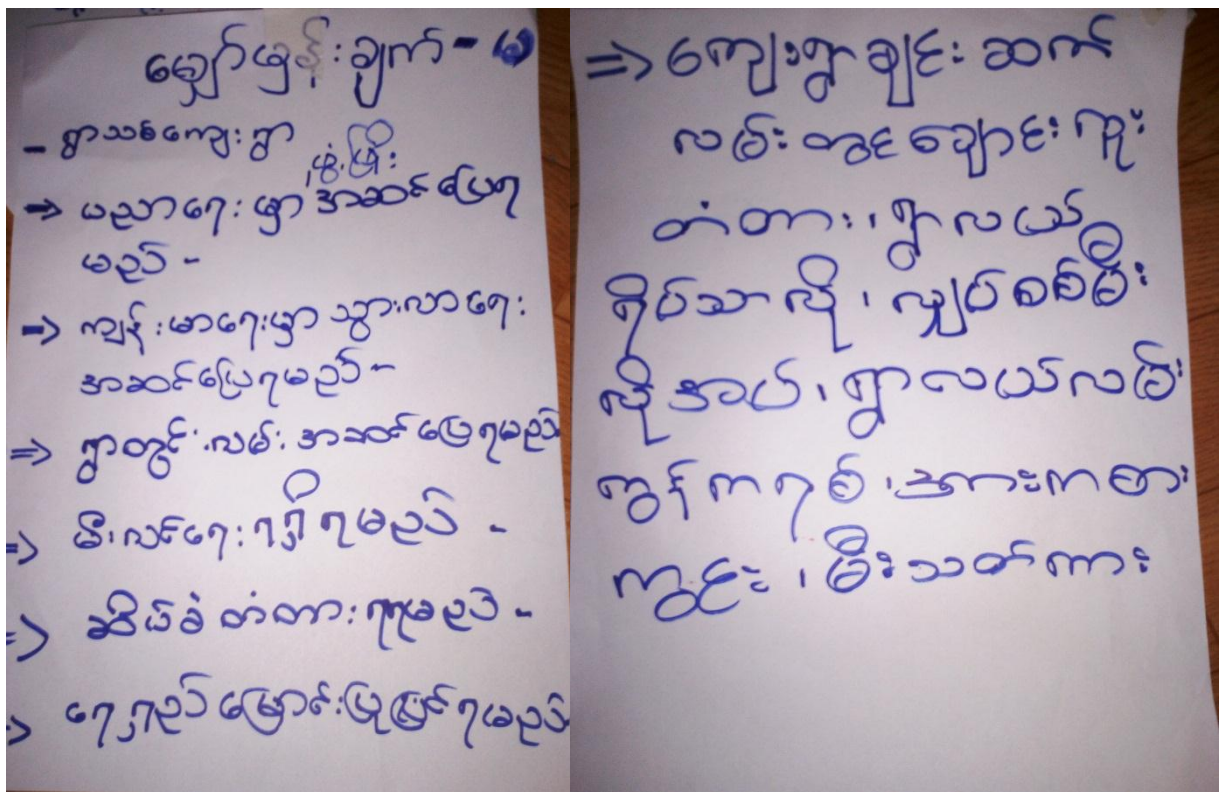 မျှော်မှန်းချက် - ၂
- ရွာသစ်ကျေးရွာ
ဖွံ့ဖြိုး
⇒ ပညာရေးမှာ အဆင်ပြေရ
မည် -
⇒ ကျန်းမာရေးမှာ သွားလာရေး
အဆင်ပြေရမည် -
⇒ ရွာတွင်းလမ်း အဆင်ပြေရမည်
⇒ မီးလင်ရေး ရရှိရမည် -
⇒ ဆိပ်ခံတံတား ရရမည် -
⇒ ရေရှည်မြောင်းပြုပြင်ရမည်
⇒ ကျေးရွာချင်းဆက်
လမ်းတွင်ချောင်းကူး
တံတား၊ ရွာလယ်
ရိပ်သာလို၊ လျှပ်စစ်မီး
လိုအပ်၊ ရွာလယ်လမ်း
ကွန်ကရစ်၊ အားကစား
ကွင်း၊ မီးသတ်ကား